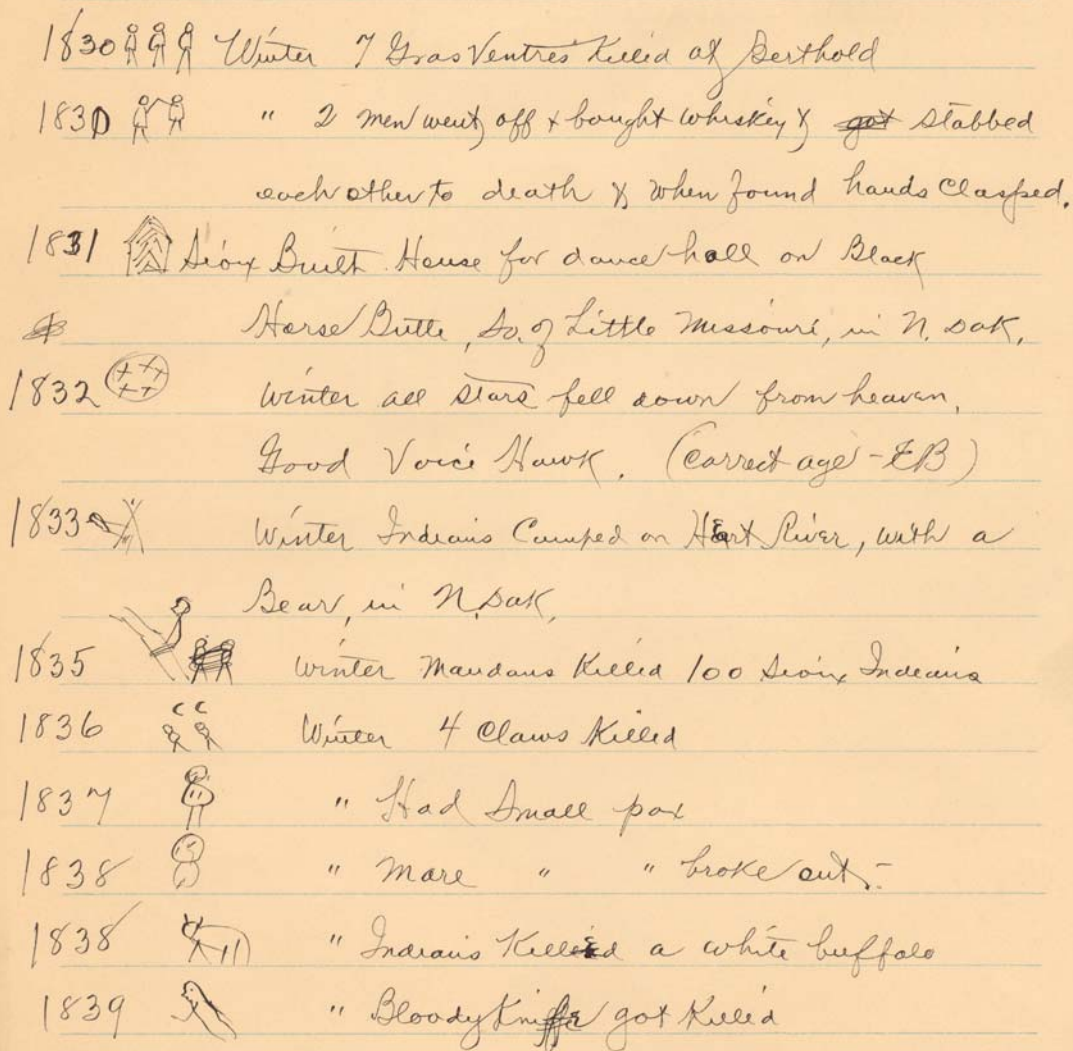 1830 Winter 7 Gras Ventres Killed at Berthold
1830 " 2 men went off & bought whiskey & got stabbed
each other to death & when found hands clasped.
1831 Sioux Built House for dance hall on Black
Horse Butte, So. of Little Missouri, in N. Dak,
1832 Winter all stars fell down from heaven,
Good Voice Hawk. (correct age - EB)
1833 Winter Indians Camped on Hart River, with a
Bear, in N. Dak,
1835 Winter Mandans Killed 100 Sioux Indians
1836 Winter 4 Claws Killed
1837 " Had Small pox
1838 " More " " broke out.-
1838 " Indians Killed a white buffalo
1839 " Bloody Knife got Killed